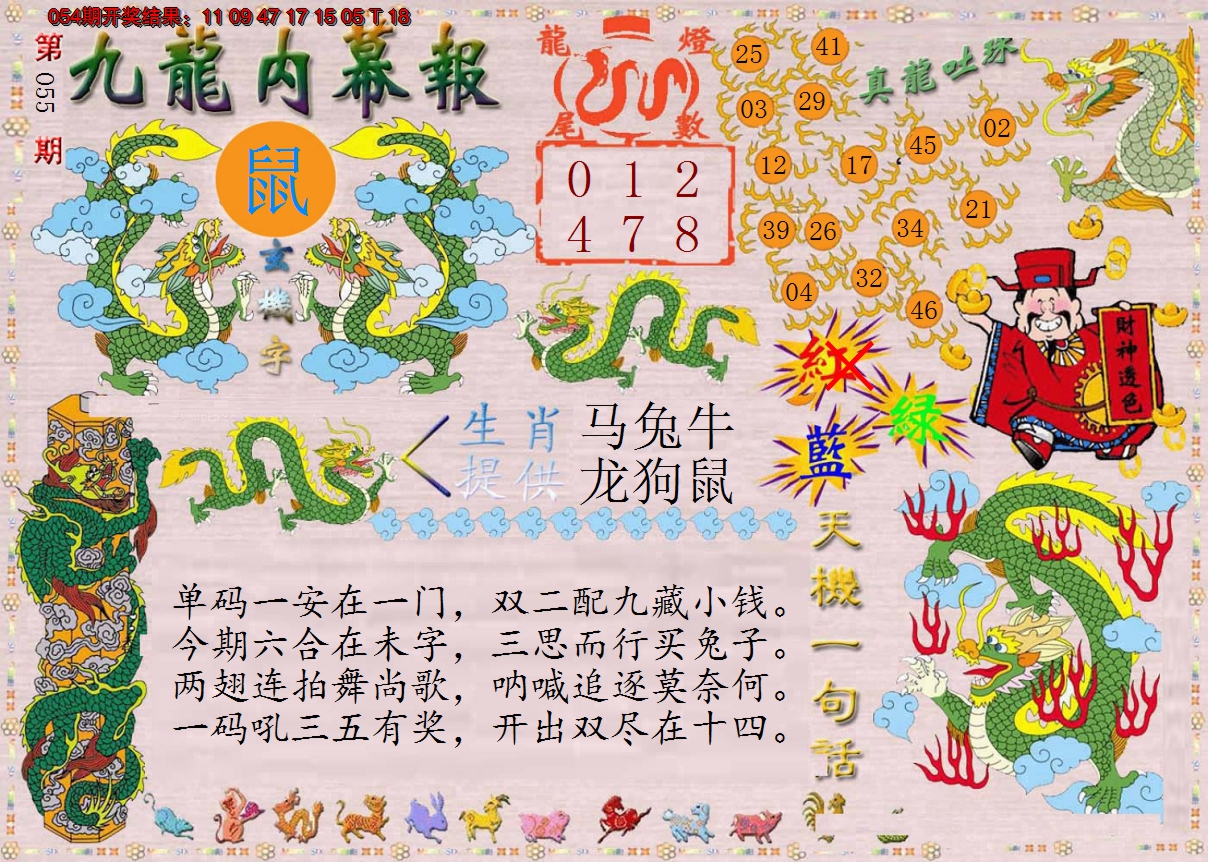 054期开奖结果：11 09 47 17 15 05 T 18
第
055
期
九龍内幕報
鼠
玄
機
字
龍 燈
尾 數
0 1 2
4 7 8
真龍吐珠
25
41
03
29
12
17
45
02
39
26
34
21
04
32
46
財神透色
紅
綠
藍
生肖 马兔牛
提供 龙狗鼠
天機一句話
单码一安在一门，双二配九藏小钱。
今期六合在未字，三思而行买兔子。
两翅连拍舞尚歌，呐喊追逐莫奈何。
一码吼三五有奖，开出双尽在十四。